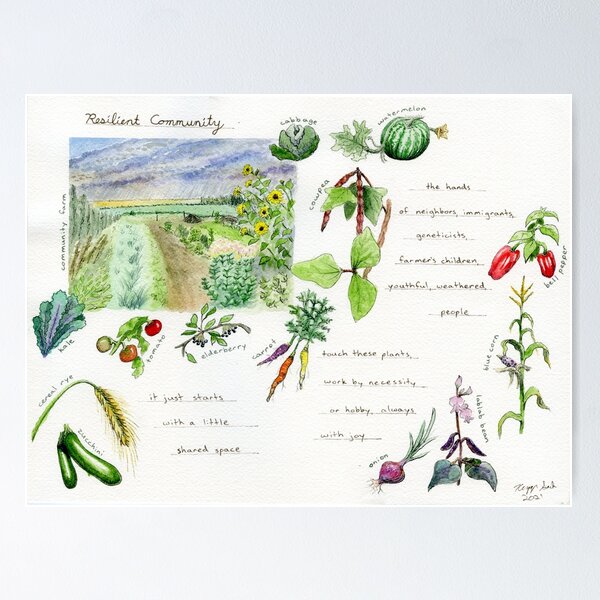 Resilient Community
cabbage
watermelon
community farm
cowpea
the hands
of neighbors, immigrants,
geneticists,
farmer's children,
youthful, weathered
people
bell pepper
kale
tomato
elderberry
carrot
blue corn
touch these plants,
work by necessity
or hobby, always
with joy
cereal rye
zucchini
it just starts
with a little
shared space
onion
lablab bean
2021